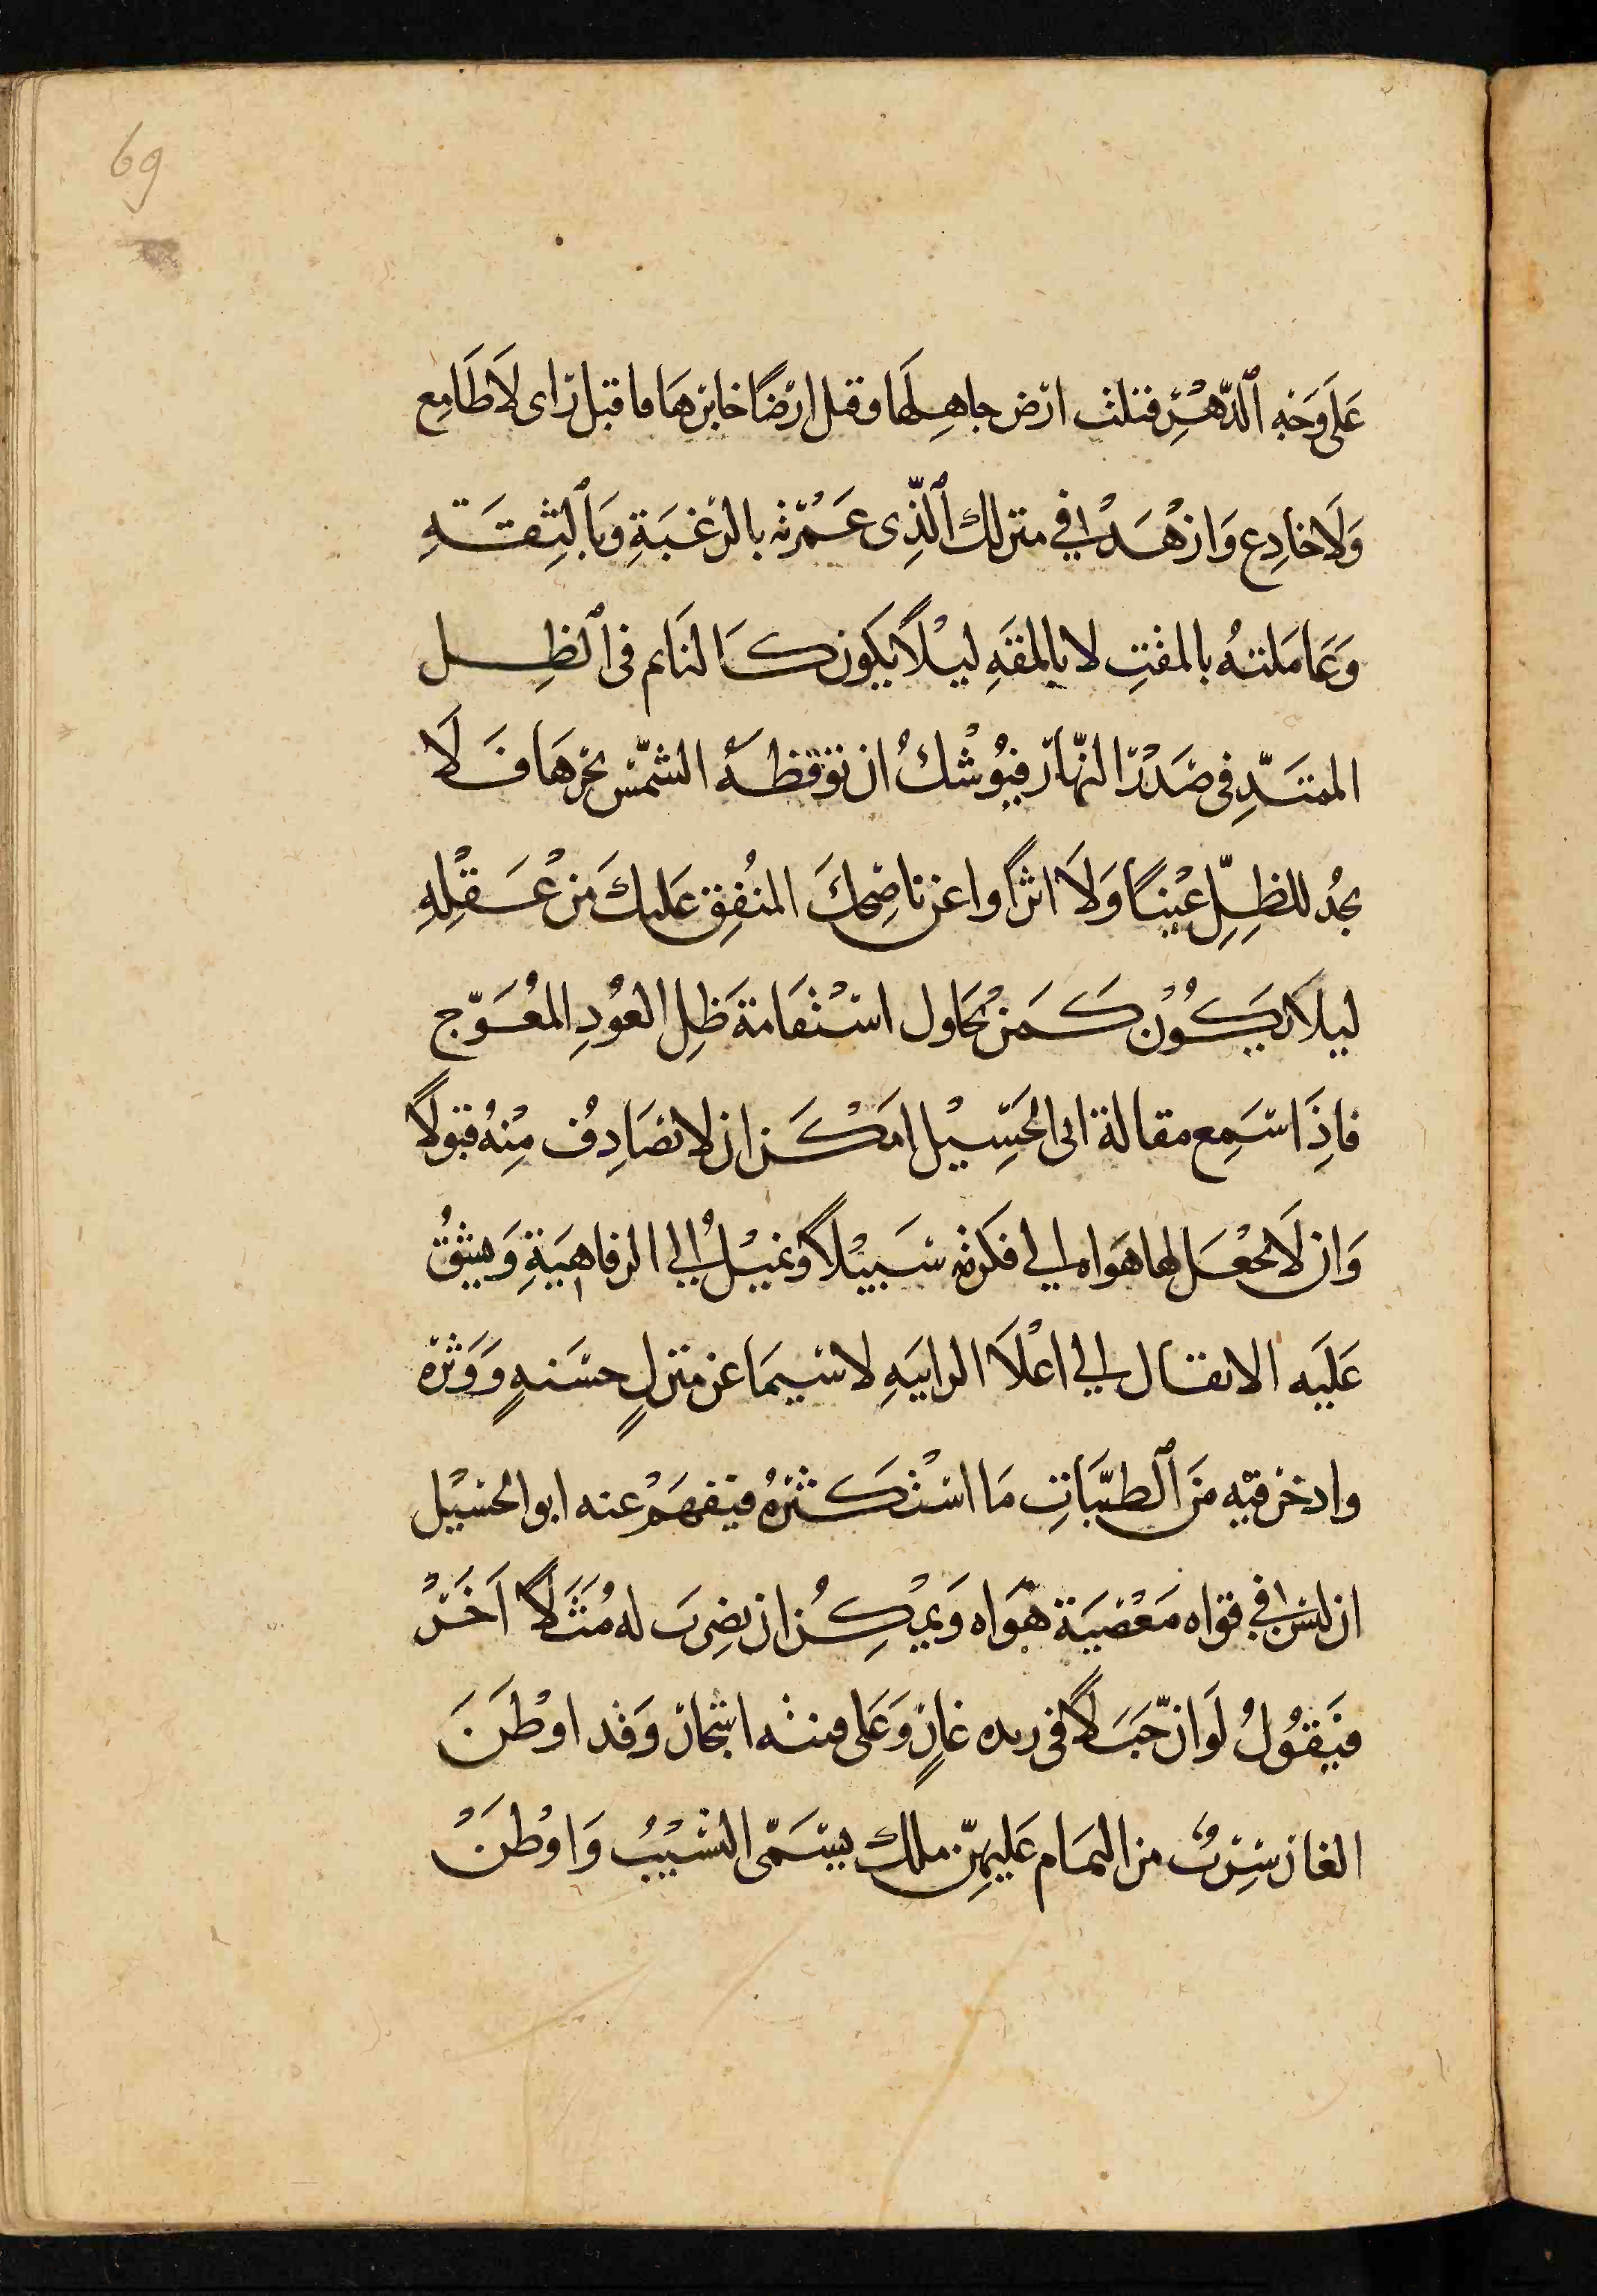 69
عَلَى وَجْهِ ٱلدَّهْرِ قتلت ارض جاهِلَهَا وقتل ارْضًا خابرهَا فاقبل رَاى لَا طَامِع
وَلَا خَادِع وَازْهَدْ في منزلك ٱلَّذِى عَمَّرْته بالرَّغْبَةِ وَبٱلثِقَةِ
وَعَامَلتهُ بالمقتِ لا بالمقَهِ ليْلاً يَكون كَالنَائم فى ٱلظِل
الممتَدِّ فى صَدْر النهّار فيُوْشكُ ان توْقظهُ الشمّس بحرّهَا فَلَا
يجُد للظِلِّ عَيْنًا وَلَا اثرًا واعن ناصِحكَ المنُفِق عَليكَ مِنْ عَقْلِهِ
ليلا يَكُوْن كَمَنْ يحَاول اسْتقَامة ظِل العُودِ المُعَوّج
فاِذَا سَمِع مقالة ابى الحَسِيْل امَكَن ان لا تصَادِف مِنْهُ قبولاً
وَان لَا يجْعَل لها هَواه الى فكرته سَبِيْلاً وَيميْلُ الي الرفاهِيَةِ وَيثقُ
عَليَه الانتقال الي اعْلَا الرابيَهِ لا سَيمَا عن منزلٍ حسَنهٍ وَوَثرهُ
وادخرَ فيْه مَن ٱلطيّبَاتِ مَا اسْتكثرهُ فيَفهَمْ عنه ابو الحسَيْل
ان ليسَ في قواه مَعْصَية هَوَاه وَيمْكِنُ ان يضِربَ له مُثَلاً اَخَرْ
فيَقوُلُ لَو انّ جَبَلاً فى ... غارٍ وَعَلى متنه اشجار وَقد اوْطَنَ
الغار سَرِبٌ من اليمَام عَليهِنّ ملك يسَمّى الشَيْبُ وَاوْطَنَ